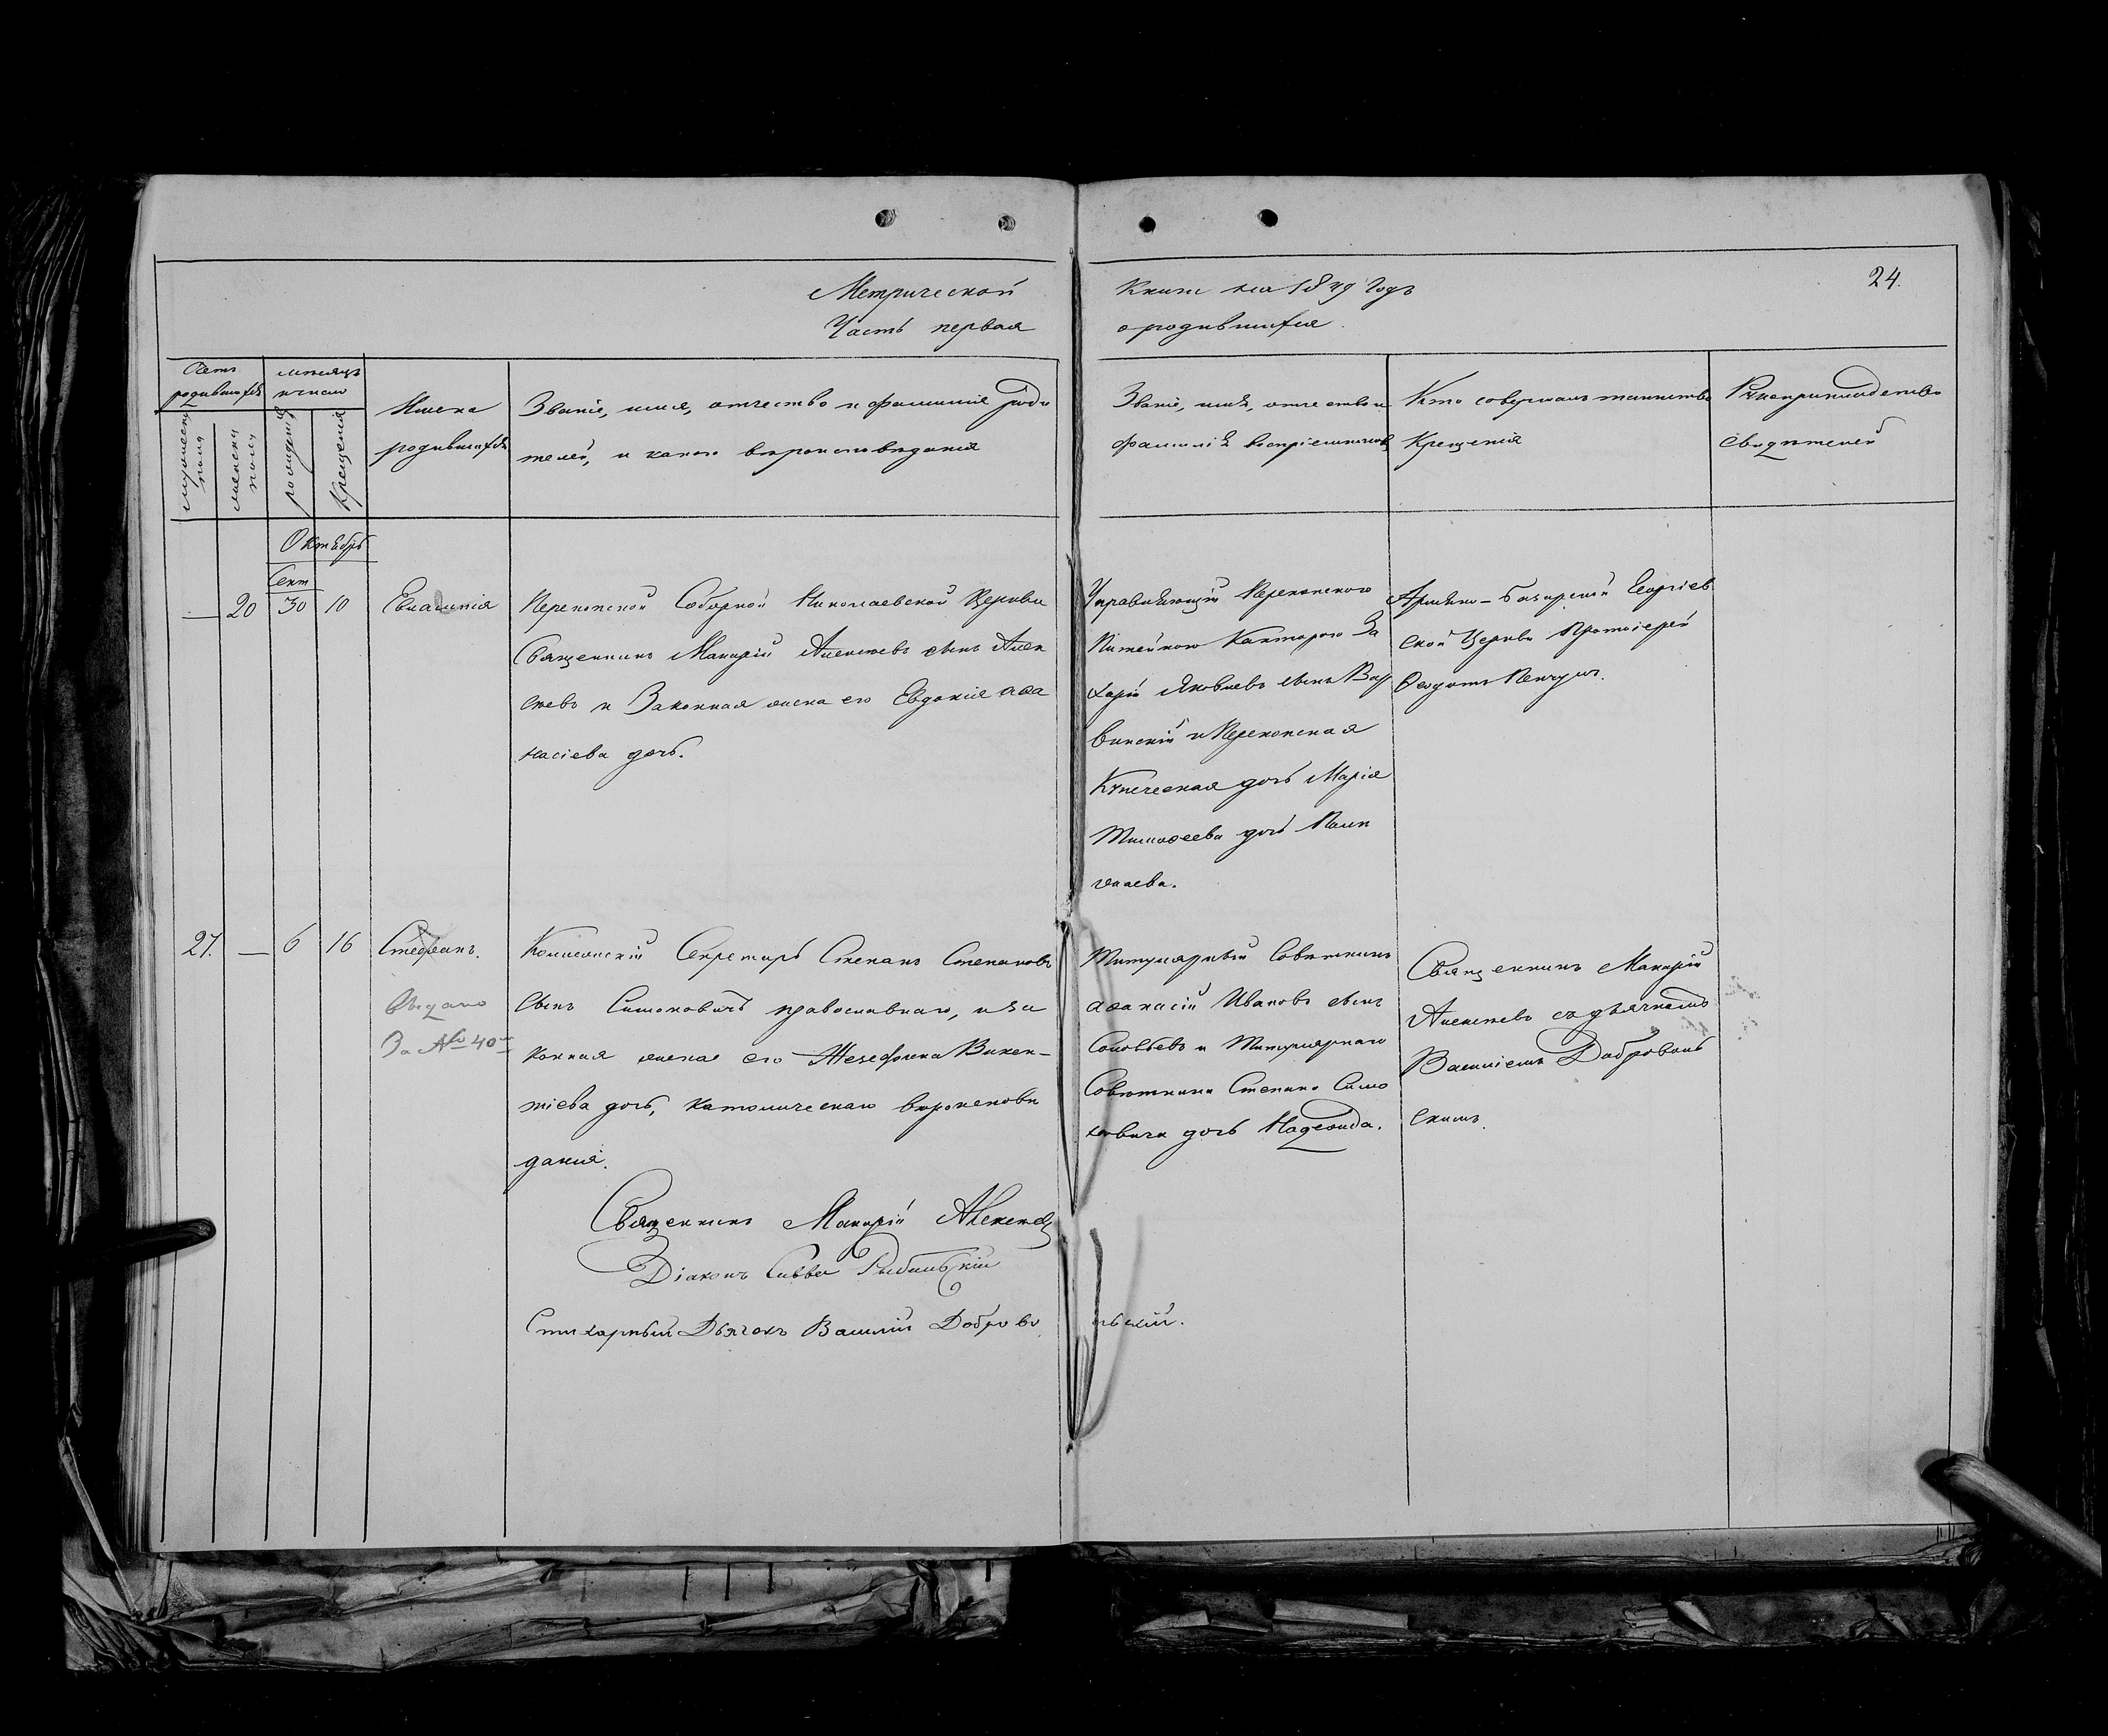 Метрической
Часть первая
Книги на 1849 Годъ
о родившихся.
24.
Счетъ родившихся
мужеска пола
женска пола
месяцъ и число
рожденія
Крещенія
Имена
родившихся
Званіе, имя, отчество и фамилія роди
телей, и какого вероисповеданія
Званіе, имя, отчество и
фамилія воспріемниковъ
Кто совершалъ таинство
Крещенія
Рукоприкладство
свидетелей
Октябрь
Сент
— 20 30 10
Евлампія
Перекопской Соборной Николаевской Церкви
Священникъ Макарій Алексеевъ сынъ Алек
сеевъ и Законная жена его Евдокія Аѳа
насіева дочь.
Управляющій Перекопского
Питейною Канторою За
харій Яковлевъ сынъ Вар
винскій и Перекопская
Купеческая дочь Марія
Тимоѳеева дочь
Армяно-базарской Георгіев
ской Церкви Протоіерей
Ѳеодотъ
27. — 6 16
Стефанъ.
Выдано
За № 40
Коллежскій Секретарь Степанъ Степановъ
сынъ Симоновичъ православнаго, и за
конная жена его Жозефина Викен-
тіева дочь, Католическаго вероиспове
данія.
Титулярный Советникъ
Аѳанасій Ивановъ сынъ
Соловьевъ и Титулярнаго
Советника Степана Симо
новича дочь Надежда.
Священникъ Макарій
Алексеевъ съ дьячкомъ
Василіемъ Доброволь
скимъ.
Священникъ Макарій Алексеевъ
Діаконъ Савва
Стихарный Дьячокъ Василій Доброво
льскій.